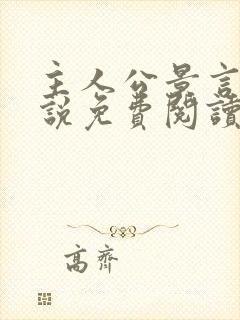 主人公景言
說免費閱讀
高齊